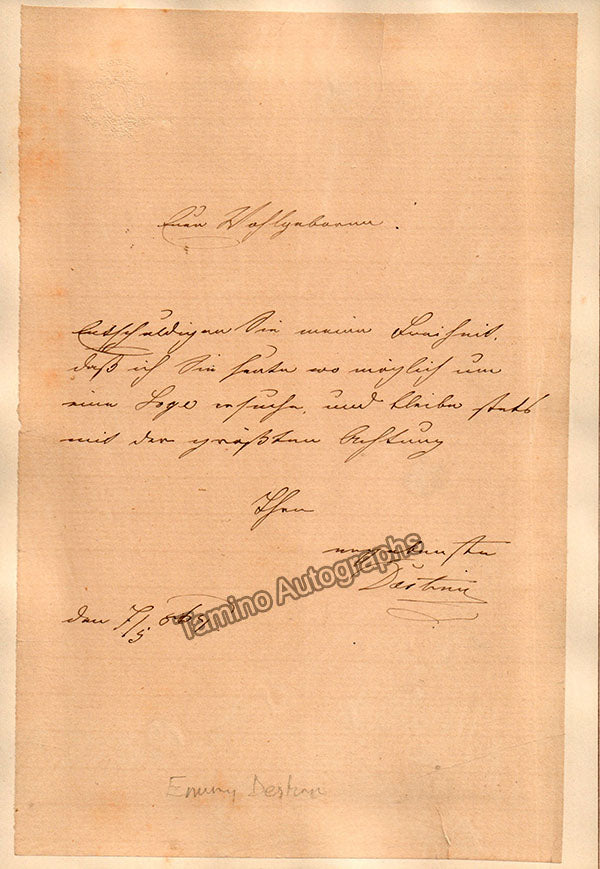 Euer Wohlgeboren.
Entschuldigen Sie meine Freiheit,
daß ich Sie heute wo möglich um
eine Loge ersuche, und bleibe stets
mit der größten Achtung
Ihre
ergebenste
Destinn
Tamino Autographs
den 7/5
Emmy Destinn